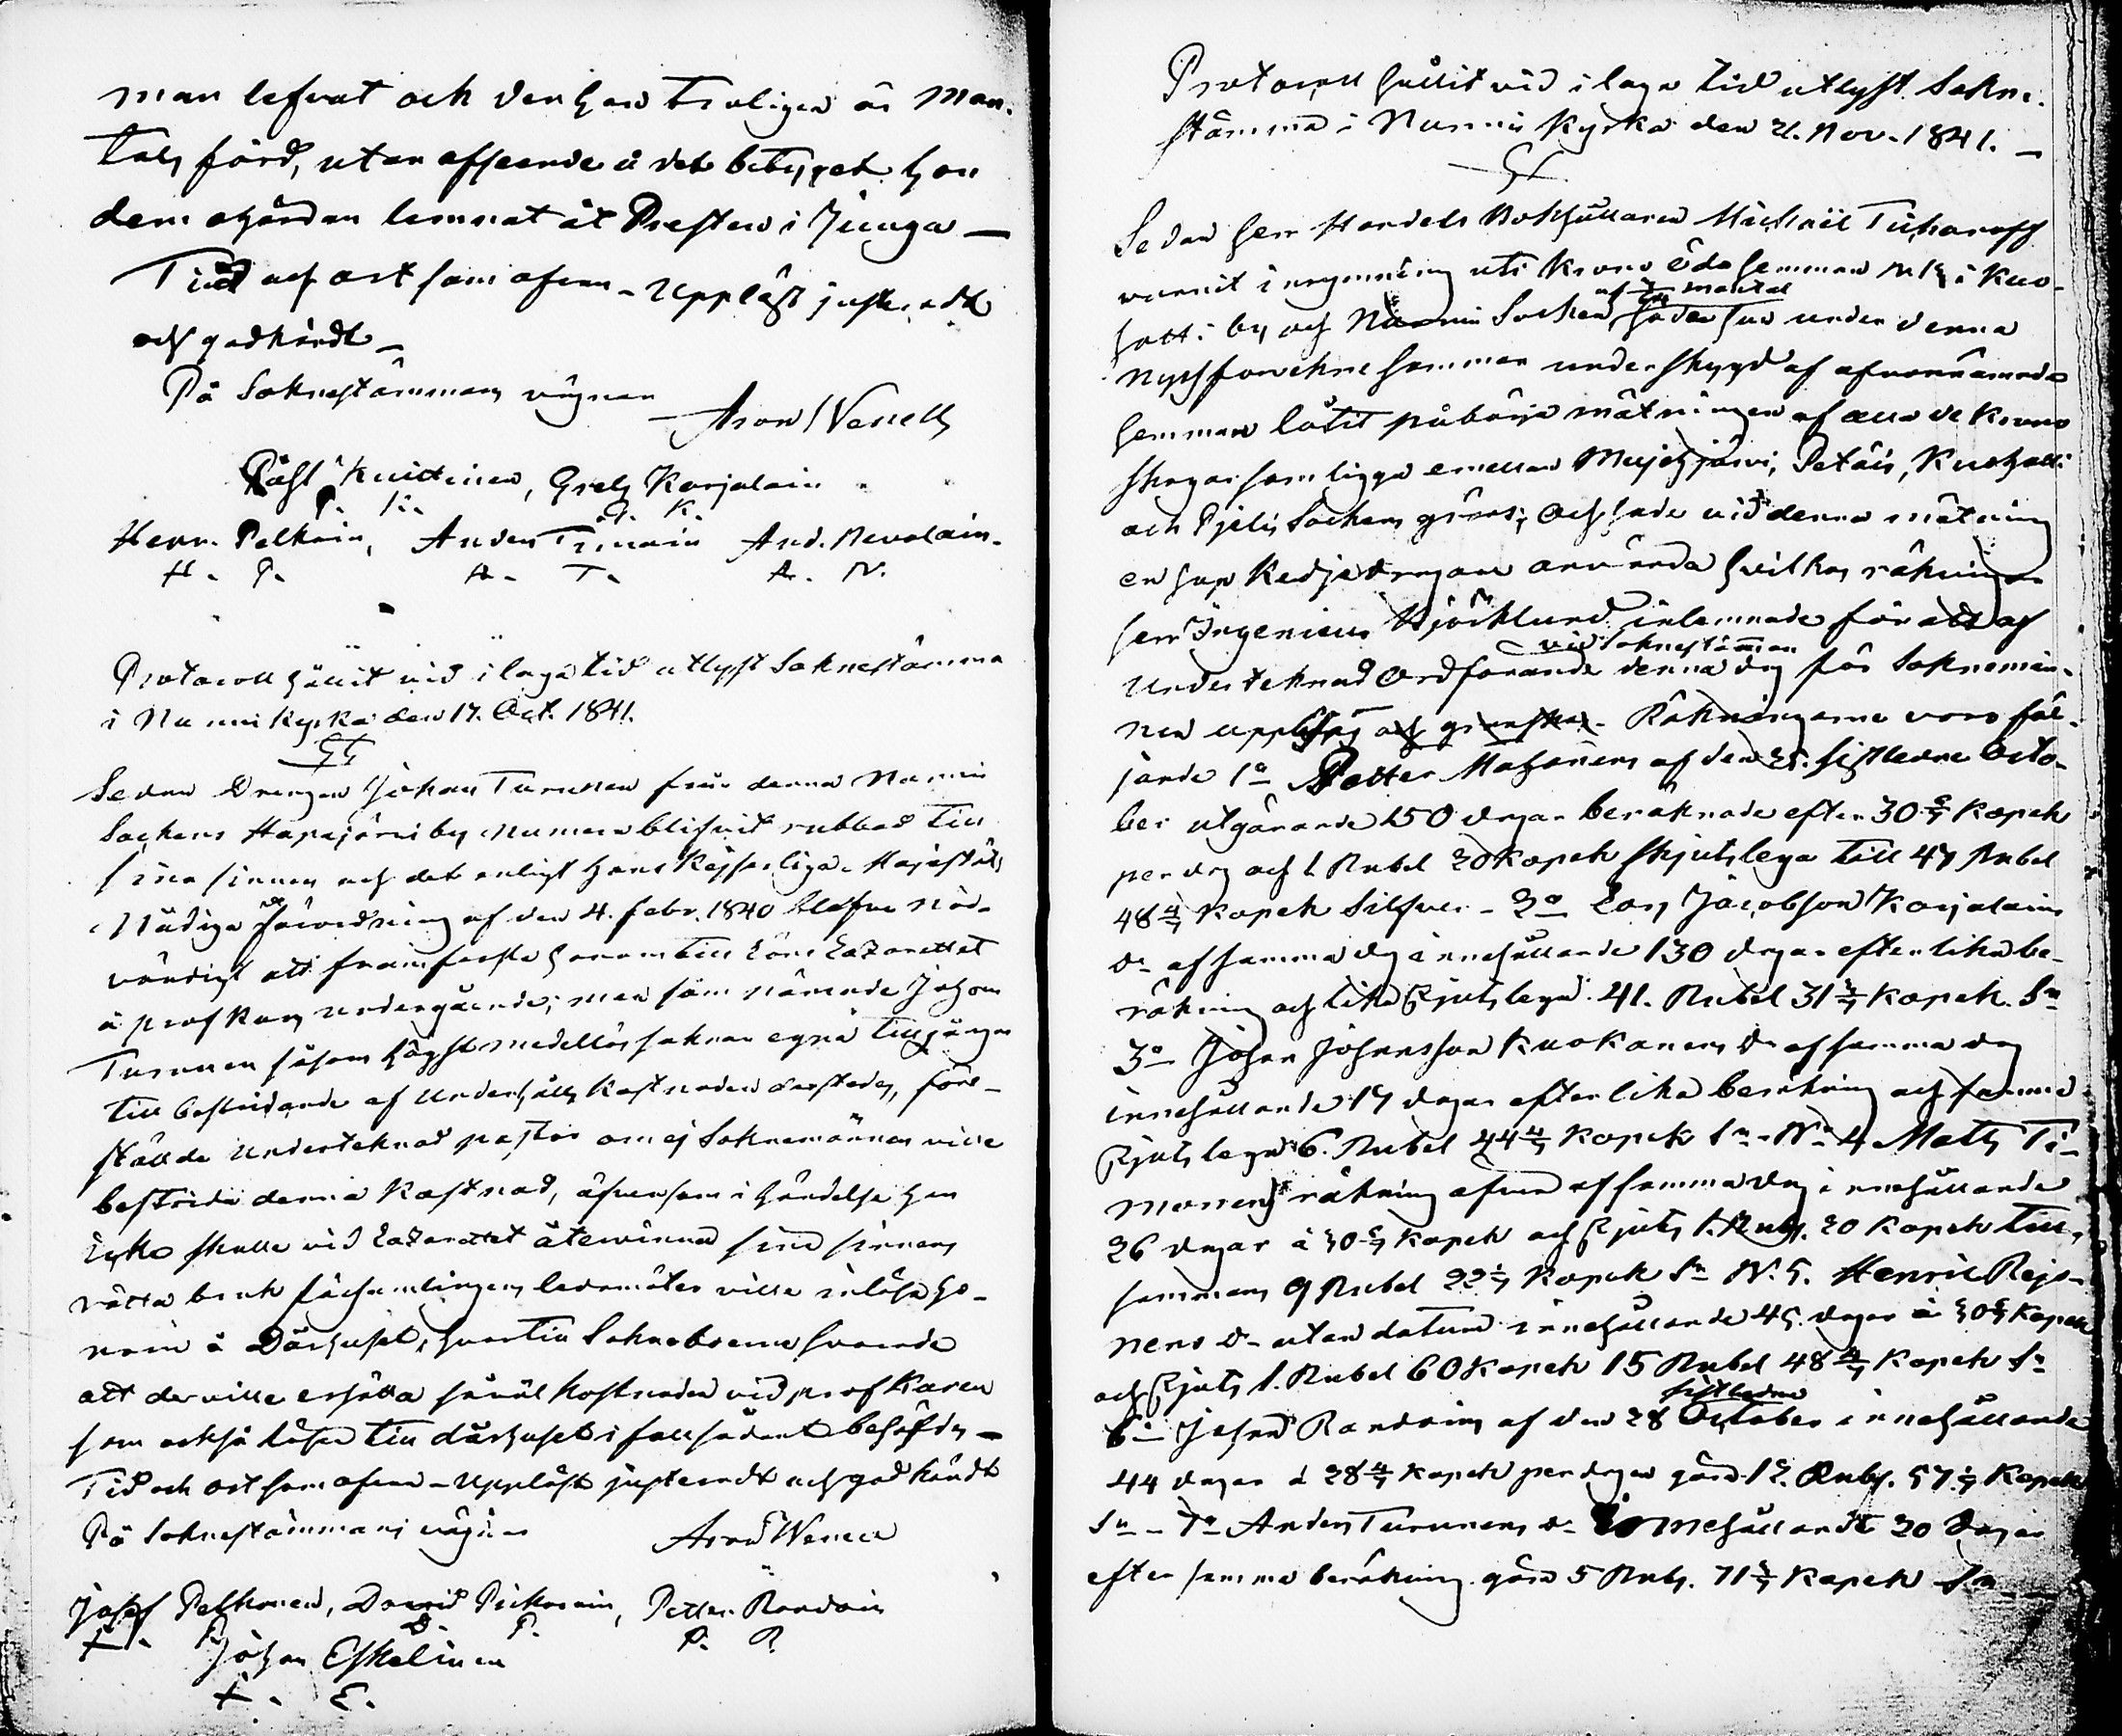 man lefvat och der han troligen är Man-
tals förd, utan afseende å det betyget han
dem åjanden lemnat åt Presten i Juuga —
Tid och ort som ofvan - Uppläst justeradt
och godkändt —
På Soknestämmans vägnar
Aron Wenell
Påhl Kuittinen, Grels Karjalain
P. K. G. K.
Henr. Pelkoin, Anders Timoin And. Nevalain.
H. P. A. T. A. N.
Protocoll hållit vid i laga tid utlyst Soknestämma
i Nurmis Kyrka den 17. Oct. 1841.
§1
Sedan Drengen Johan Turunen från denna Nurmis
Sockens Haapajärvi by numera blifvit rubbad till
sina sinnen och det enligt Hans Kejserliga Majestäts
Nådiga Förordning af den 4. Febr. 1840 blefve nöd-
vändigt att framforsla honom till Läns Lazarettet
å profkurs undergående; men som nämnde Johan
Turunen såsom högst medellös saknar egna tillgångar
till bestridande af Underhålls Kostnaden derstädes, före-
ställde Undertecknad pastor om ej Soknemännen ville
bestrida denna Kostnad, äfvensom i händelse han
icke skulle vid Lazarettet återvinna sina sinnens
rätta bruk församlingens ledamöter ville inlösa ho-
nom å Dårhuset, hvartill Sokneboerne svarade
att de ville ersätta såväl kostnaden vid profkuren
som också lösen till dårhuset i fall sådant behöfdes —
Tid och ort som ofvan - Uppläst justeradt och godkändt
På Soknestämmans vägnar Aron Wenell
Josef Pelkonen, David Pickarain, Petter Randoin
J. P. D. P. P. R.
Johan Eskelinen
J. E.
Protocoll hållit vid i laga tid utlyst Sokne-
stämma i Nurmis Kyrka den 21. Nov. 1841. —
§1.
Sedan Herr Handels Bokhållaren Michaël Tichanoff
vunnit inrymning uti Krono öde hemman N. i Kuo-
af mantal
hatti by och Nurmis Socken hade han under denna
nyss förvekne sommar under skygd af ofvannämnda
hemman låtit påbörja mätningen af alla de Krono
skogar som ligga emellan Mujejärvi, Petäis, Kuohatti
och Pjelis Sockens gräns; och hade vid denna mätning
en hop Kedjedragare använda hvilkas räkningar
herr Ingenieur Björklund inlemnade för att af
vid Soknestämman
Undertecknad Ordförande denna dag för Soknemän-
nen uppläsas och granskas. Räkningarne voro föl-
jande 1o Petter Mahonens af den 25. sistledne Octo-
ber utgörande 150 dagar beräknade efter 30 6/7 Kopek
per dag och 1 Rubel 20 Kopek skjutslega till 47 Rubel
48 4/7 Kopek Silfver - 2o Lars Jacobson Karjalains
do af samma dag innehållande 130 dagar efter lika be-
räkning och lika skjutslega. 41. Rubel 31 3/7 Kopek. Sr
3o Johan Johansson Kuokanens do af samma dag
innehållande 17 dagar efter lika beräkning och samma
skjutslega 6. Rubel 44 4/7 Kopek Sr - No 4 Matts Ti-
monens räkning äfven af samma dag innehållande
26 dagar à 30 6/7 Kopek och skjuts 1. Rub. 20 Kopek till
sammans 9 Rubel 22 2/7 Kopek Sr N. 5. Henric Rejo-
nens do utan datum innehållande 45. dagar à 30 6/7 Kopek
och skjuts 1. Rubel 60 Kopek 15 Rubel 48 4/7 Kopek Sr
sistledne
6o Johan Randoins af den 28 October innehållande
44 dagar à 28 4/7 Kopek per dagen görs 12. Rub. 57 1/7 Kopek
Sr - 7o Anders Turunens do innehållande 20 dagar
efter samma beräkning görs 5 Rub. 71 3/7 Kopek Sr